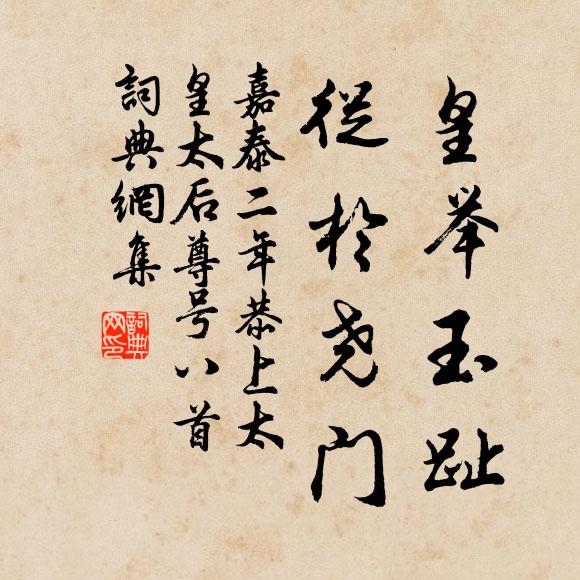 皇举玉趾
從於尧门
嘉泰二年恭上太
皇太后尊号八首
詞典網集
詞典網印